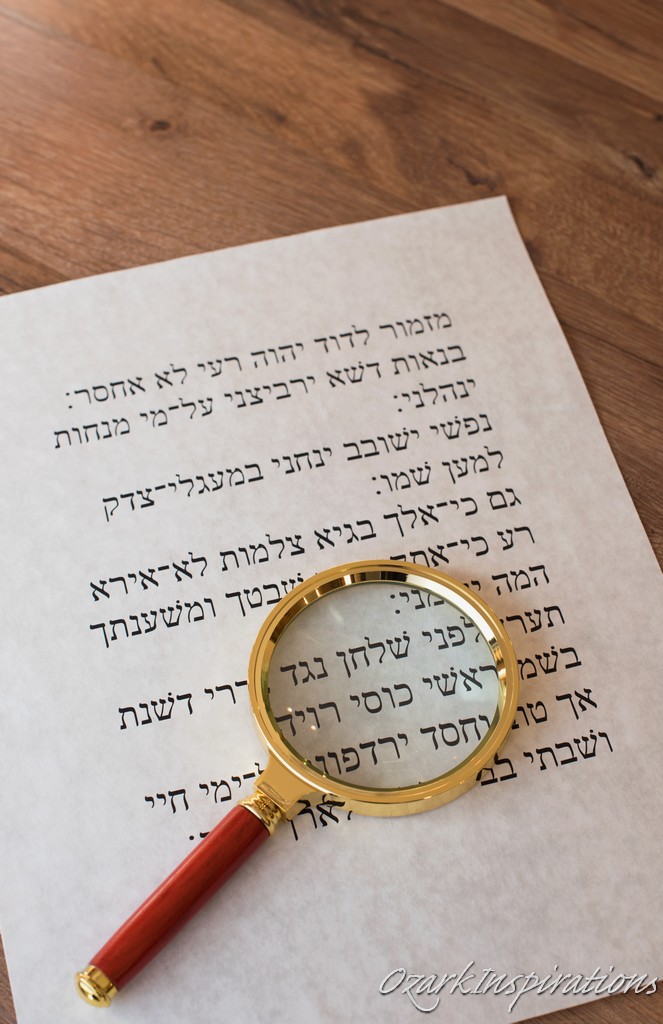 מזמור לדוד יהוה רעי לא אחסר:
בנאות דשׁא ירביצני על־מי מנחות
ינהלני:
נפשׁי ישׁובב ינחני במעגלי־צדק
למען שׁמו:
גם כי־אלך בגיא צלמות לא־אירא
רע שׁבטך ומשׁענתך
המה
לפני שׁלחן נגד דשׁנת
ראשׁי כוסי רויה
אך טוב וחסד ירדפוני חיי
ושׁבתי
OzarkInspirations